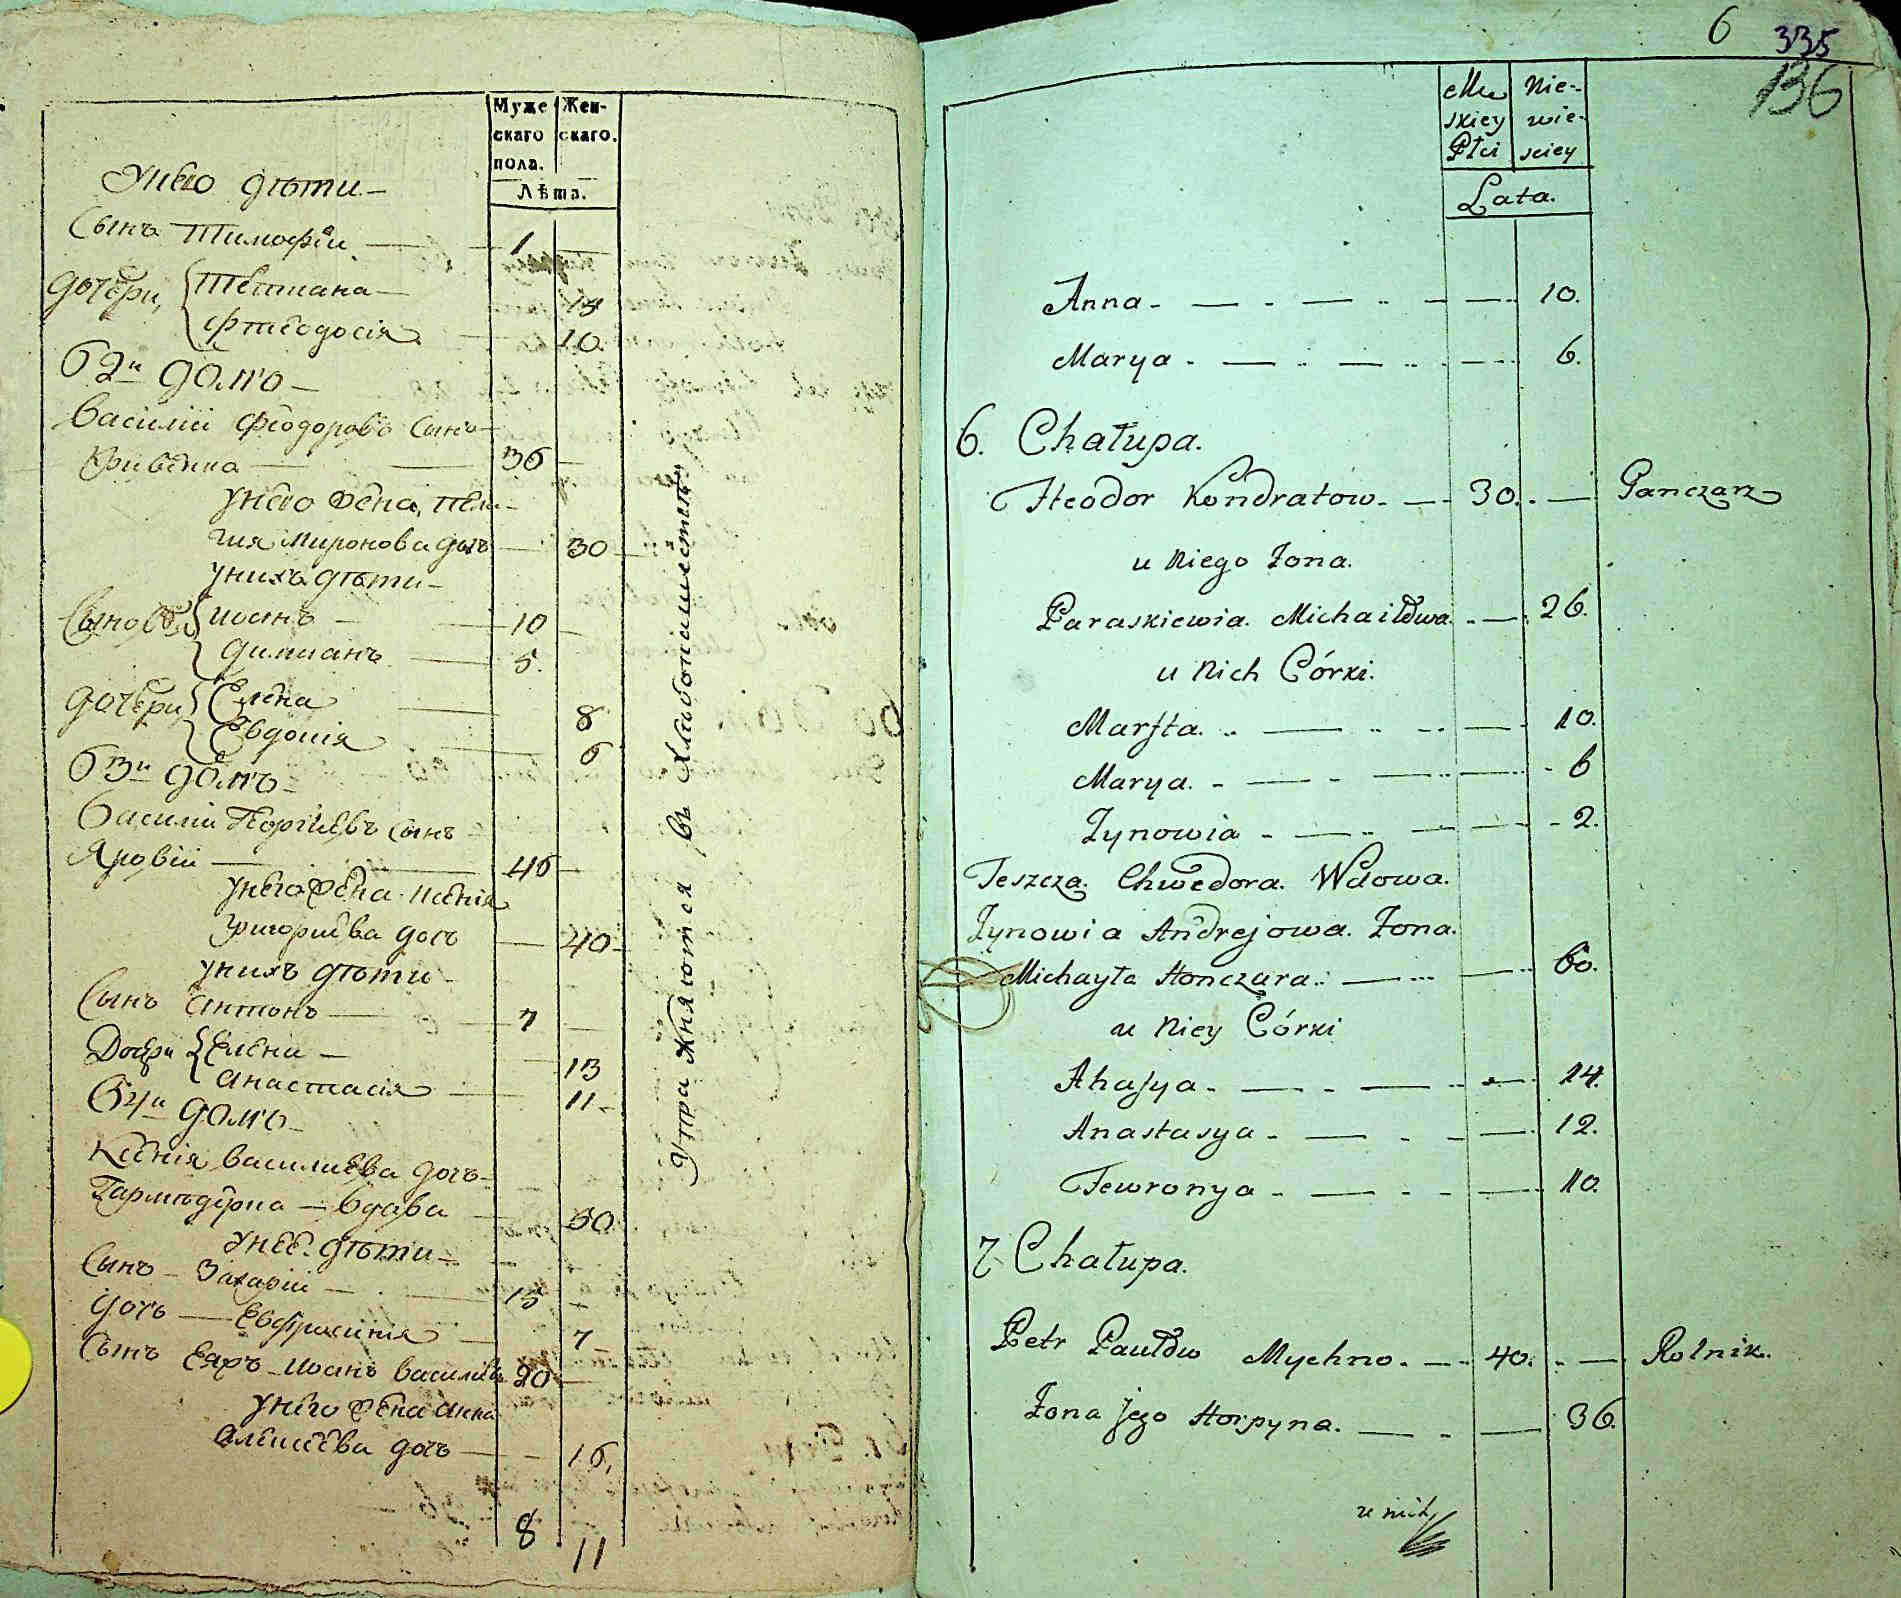 Муже
скаго
пола.
Жен-
скаго.
Лѣта.
Унего дѣти
Сынъ Тимофей 1
дочери, Тетиана 14
Фтеодосія 10
62й домъ
Василій Феодоровъ сынъ
Кривенка 36
унего жена, Пела-
гия Миронова дочь 30
унихъ дѣти
Сыновя Иоанъ 10
Дамианъ 5.
дочери Елена 8
Евдокія 6
63й домъ
Василій Георгиевъ сынъ
Яровій 46
унего жена Ксенія
Григориева дочь 40
унихъ дѣти
Сынъ Антонъ 7
Дочери Елена 13
Анастасія 11
64й домъ
Ксенія Василиева дочь
вдава 50
унее дѣти
Сынъ Захарій 15
дочь Евфросинія 7
Сынъ Иоанъ Василиевъ 20
унего жена Анна
Алексеева дочь 16,
8 11
Упражняются въ Хлебопашестве
6 335
136
Mę
skiey
Płci
Nie-
wie-
sciey
Lata.
Anna 10.
Marya 6.
6. Chałupa.
Heodor Kondratow. 30. Ganczarz
u Niego Żona.
Paraskiewia. Michaiłowa. 26.
u Nich Córki.
Marfta. 10.
Marya. 6
Zynowia 2.
Teszcza. Chwedora. Wdowa.
Zynowia Andrejowa. Żona.
Michayła Honczara. 60.
u Niey Córki
Ahafya 14.
Anastasya 12.
Fewronya 10.
7 Chałupa.
Petr Pawłow Mychno. 40. Rolnik.
Żona jego Horpyna. 36.
u nich